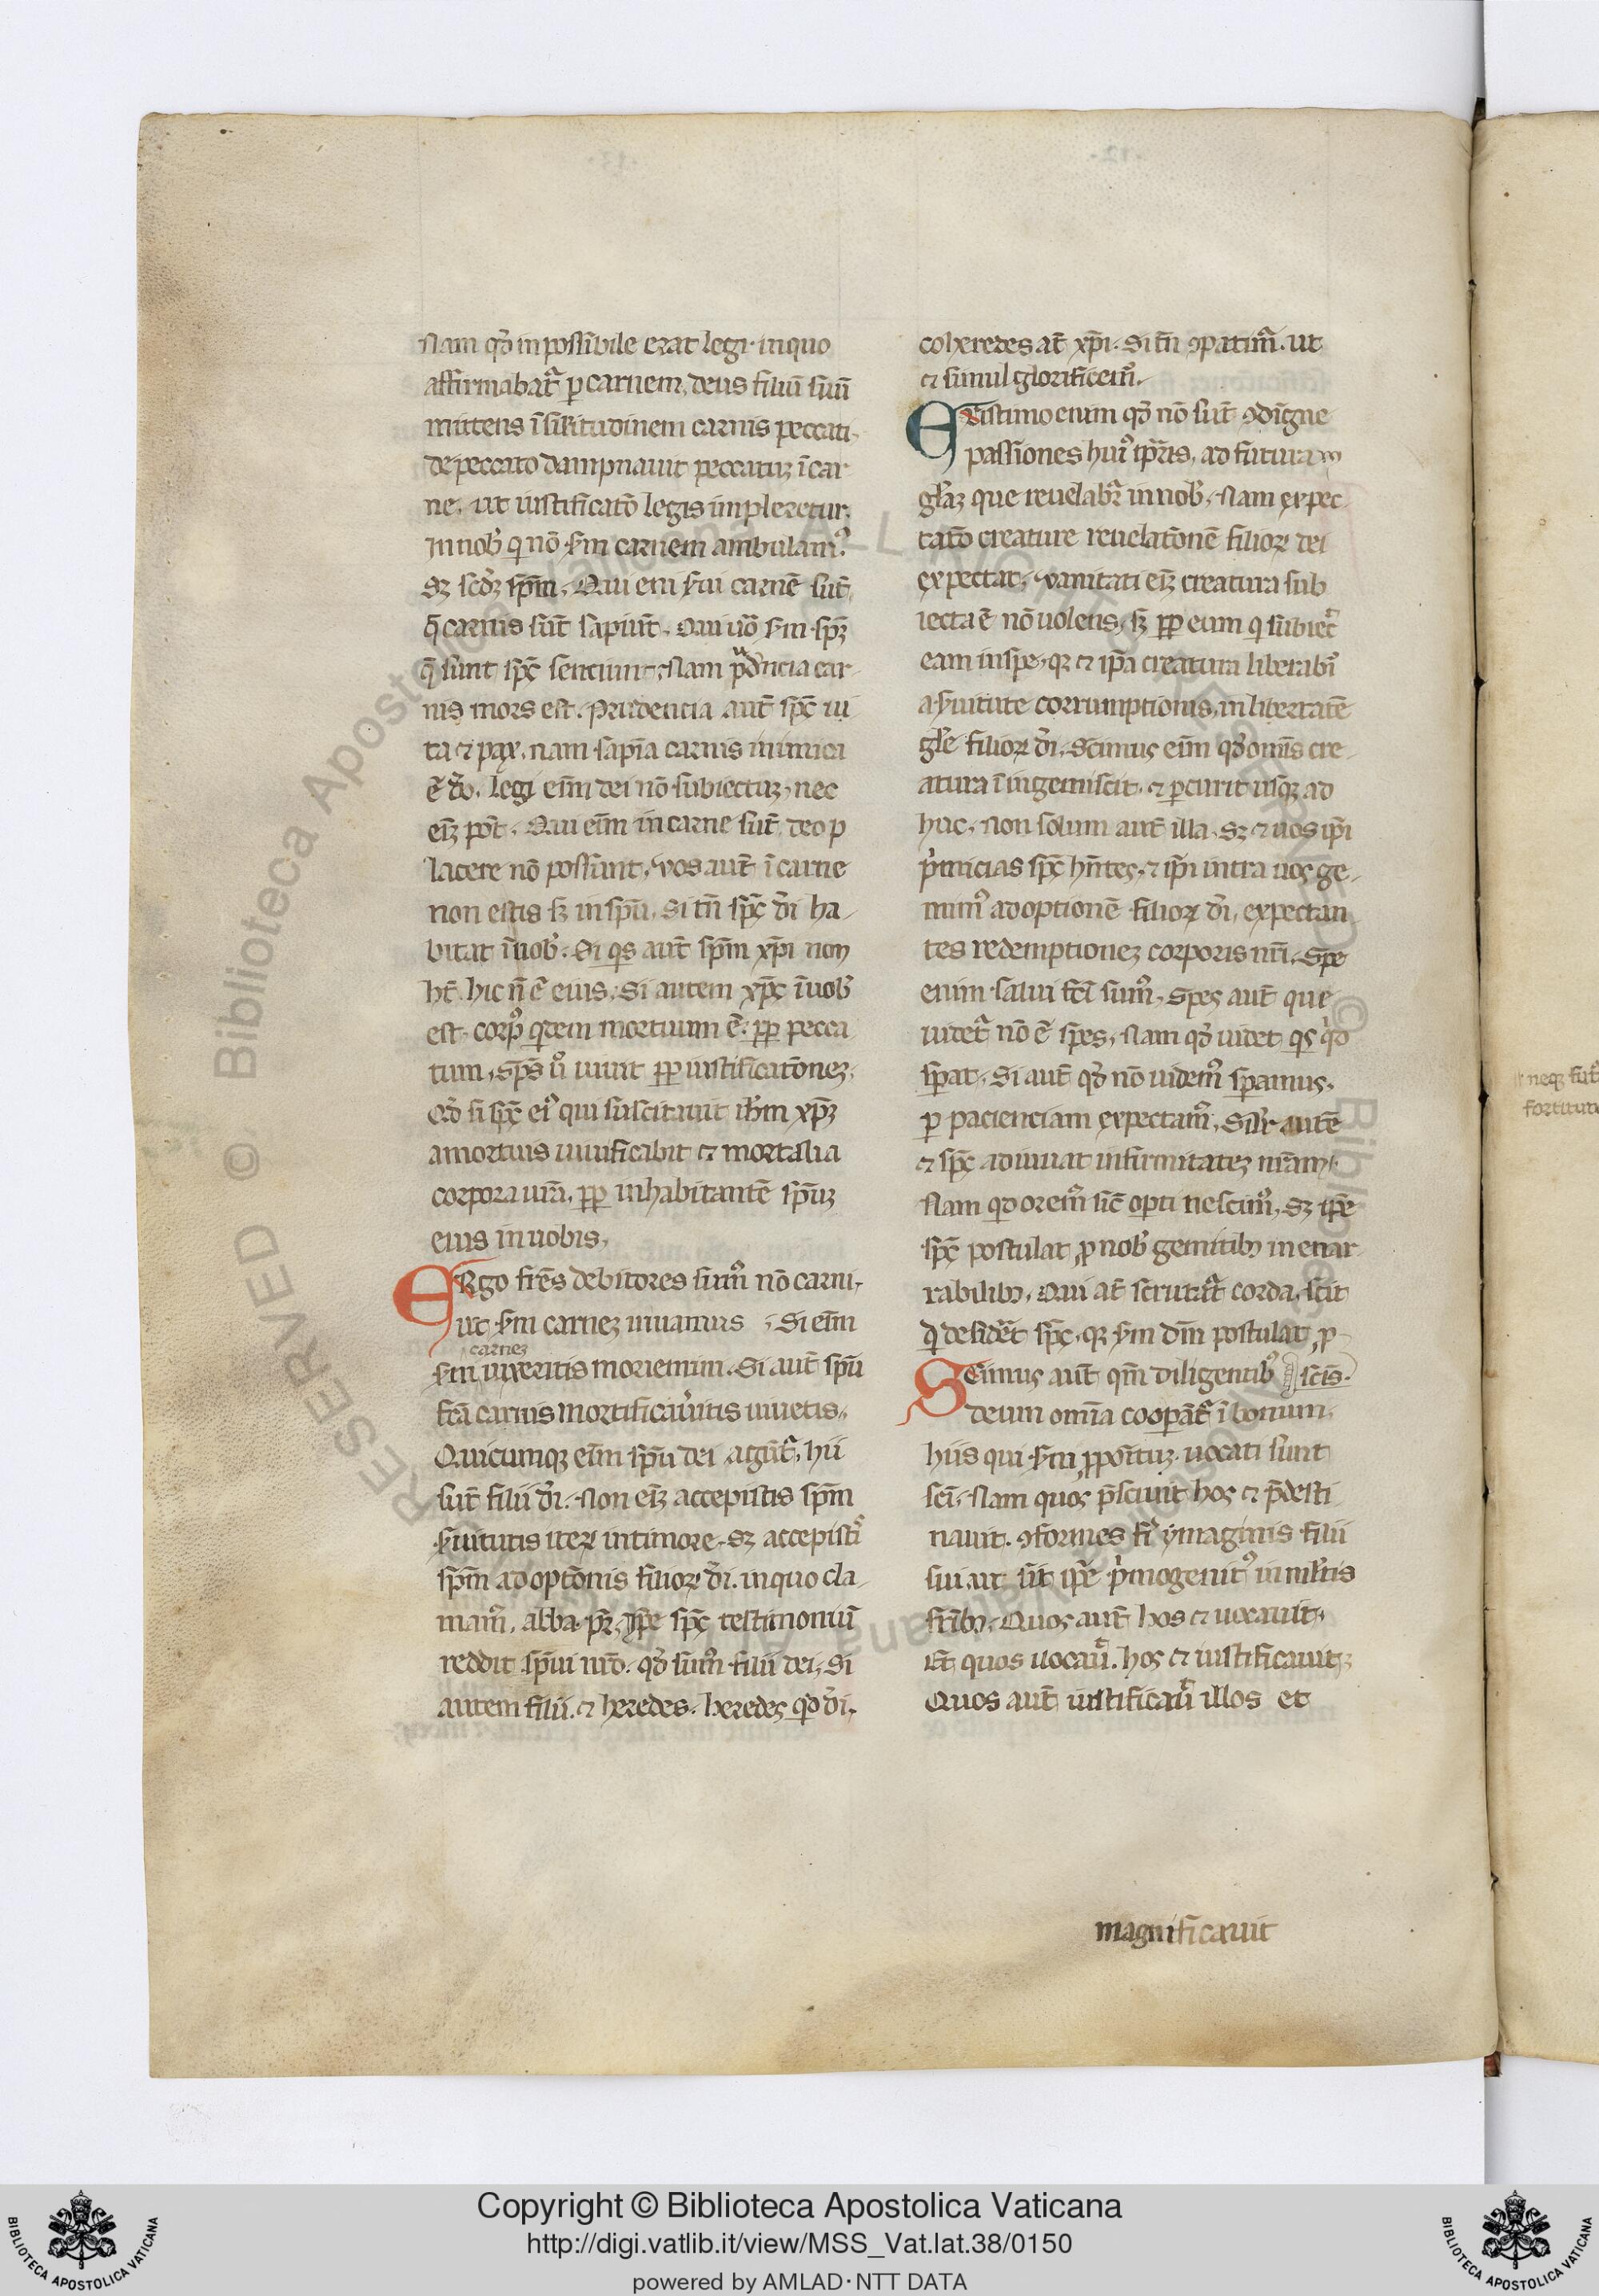 Nam qđ inpossibile erat legi· inquo
affirmabat᷑ ꝑ carnem, deus filiū suū
mittens ī sil̄itudinem carnis peccati·
de peccato dampnauit peccatuꝫ ī car
ne. ut iustificatō legis impleretur.
In nob᷒ q̄ nō ẜm carnem ambulam᷒.
Sꝫ scđꝫ sp̄m. Qui eni ẜm carnē sūt,
q̄ carnis sūt sapiūt. Qui uō ẜm sp̄ꝫ
q̄ sunt sp̄c sentiunt. Nam prud̄ncia car
nis mors est. Prudencia aut̄ sp̄c ui
ta ⁊ pax. nam sapīa carnis inimica
ē dō. legi eīm dei nō subiectuꝫ, nec
eīꝫ pōt. Qui eīm in carne sūt, deo p
lacere nō possunt, vos aut̄ ī carne
non estis sꝫ in sp̄u. Si tn̄ sp̄c dī ha
bitat ī uob᷒. Si q̄s aut̄ sp̄m xp̄i non
ht̄. hic n̄ ē eius. Si autem xp̄c ī uob᷒
est. corp᷒ q̄dem mortuum ē. ꝓp̄ pecca
tum, sp̄s ū uiuit ꝓp̄ iustificatōneꝫ.
Qđ si sp̄c ei᷒ qui suscitauit ih̄m xp̄ꝫ
amortuis uiuificabit ⁊ mortalia
corpora ur̄a, ꝓp̄ inhabitantē sp̄uꝫ
eius in uobis.
ERgo fr̄es debitores sum᷒ nō carni,
ut ẜm carneꝫ uiuamus ; Si eīm
carneꝫ
ẜm uixeritis moriemini. Si aut̄ sp̄u
fc̄a carnis mortificau̾itis uiuetis.
Quicunqꝫ eīm sp̄u dei agūt᷑, hii
sūt filii dī. Non eīꝫ accepistis sp̄m
ẜuitutis iteꝝ intimore. Sꝫ accepisti᷒
sp̄m adoptōnis filioꝝ dī. inquo cla
mam᷒. abba pr̄. Ip̄e sp̄c testimoniū
reddit sp̄ui nr̄o. qđ sum᷒ filii dei, Si
autem filii. ⁊ heredes. heredes qđ dī.
coheredes at̄ xp̄i. Si tn̄ ꝯpatim᷒. ut
⁊ simul glorificem᷒.
EXistimo enim qđ nō sūt ꝯdigne
passiones hui᷒ tp̄ris, ad futuram
gl̄aꝫ que reuelabr̄ in nob᷒. Nam expec
tatō creature reuelatōnē filioꝝ dei
expectat. vanitati eīꝫ creatura sub
iecta ē nō uolens, sꝫ ꝓp̄ eum q̄ subiec̄
eam in spe, qꝫ ⁊ ip̄a creatura liberabr̄
a ẜuitute corrumptionis, in libertatē
gl̄e filioꝝ dī. Scimus eīm qđ omīs cre
atura īgemiscit. ⁊ ꝑturit usqꝫ ad
huc. Non solum aut̄ illa. Sꝫ ⁊ nos ip̄i
p̄micias sp̄c hn̄tes. ⁊ ip̄i intra nos ge
mim᷒ adoptionē filioꝝ dī, expectan
tes redemptioneꝫ corporis nr̄i. Spe
enim salui fc̄i sum᷒. Spes aut̄ que
uidet᷑ nō ē spes. Nam qđ uidet q̄s q̄d
sꝑat. Si aut̄ qđ nō uidem᷒ sꝑamus.
ꝑ pacienciam expectam᷒, Sil̄r autē
⁊ sp̄c adiuuat infirmitateꝫ nr̄am.
Nam q̄d orem᷒ sic̄ opti nescim᷒, Sꝫ ip̄e
sp̄c postulat ꝓ nob᷒ gemitibꝫ in enar
rabilibꝫ. Qui at̄ scrutat᷑ corda, scit
q̄ desid̄et sp̄c. qꝫ ẜm dm̄ postulat ꝓ
SCimus aut̄ qm̄ diligentib᷒ sc̄is.
deum omīa cooꝑāt᷑ ī bonum.
hiis qui ẜm ꝓpōituꝫ uocati sunt
sc̄i. Nam quos p̄sciuit hos ⁊ p̄desti
nauit. ꝯformes fi̾i ymaginis filii
sui. ut sit ip̄e p̄mogenit᷒ in ml̄tis
fr̄ibꝫ. Quos aut̄ hos ⁊ uocauit.
Et quos uocau̾. hos ⁊ iustificauit
Quos aut̄ iustificau̾ illos et
magnificauit
neqꝫ fut̄
fortitud
Copyright © Biblioteca Apostolica Vaticana
http://digi.vatlib.it/view/MSS_Vat.lat.38/0150
powered by AMLAD·NTT DATA
BIBLIOTECA APOSTOLICA VATICANA
BIBLIOTECA APOSTOLICA VATICANA